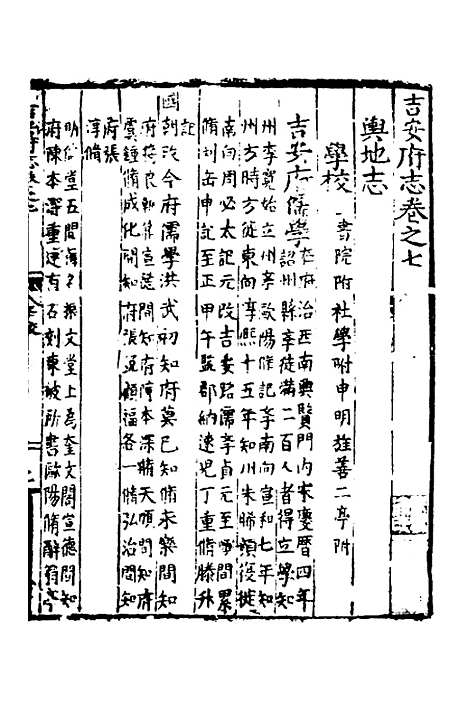 吉安府志卷之七
輿地志
學校 書院附社學附申明旌善二亭附
吉安府儒學 在府治西南興賢門內宋慶曆四年
詔州縣學徒滿二百人者得立學知
州李寬始立州學歐陽脩記李南向宣和七年知
州方時方徙東向淳熙十五年知州朱晞顏復徙
南向周必太記元改吉安路儒學貞元至間累
脩劉岳申記至正甲午監郡納速兒丁重脩滕升
記
國朝改今府儒學洪武初知府莫已知脩永樂間知
府蔣良輔脩宣德間知府陳本深脩天順間知府
虞鍾脩成化間知府張恒福各一脩弘治間知
府張
淳脩
明倫堂五間舊名振文堂上為奎文閣宣德間知
府陳本深重建有石刻東坡所書歐陽脩醉翁亭